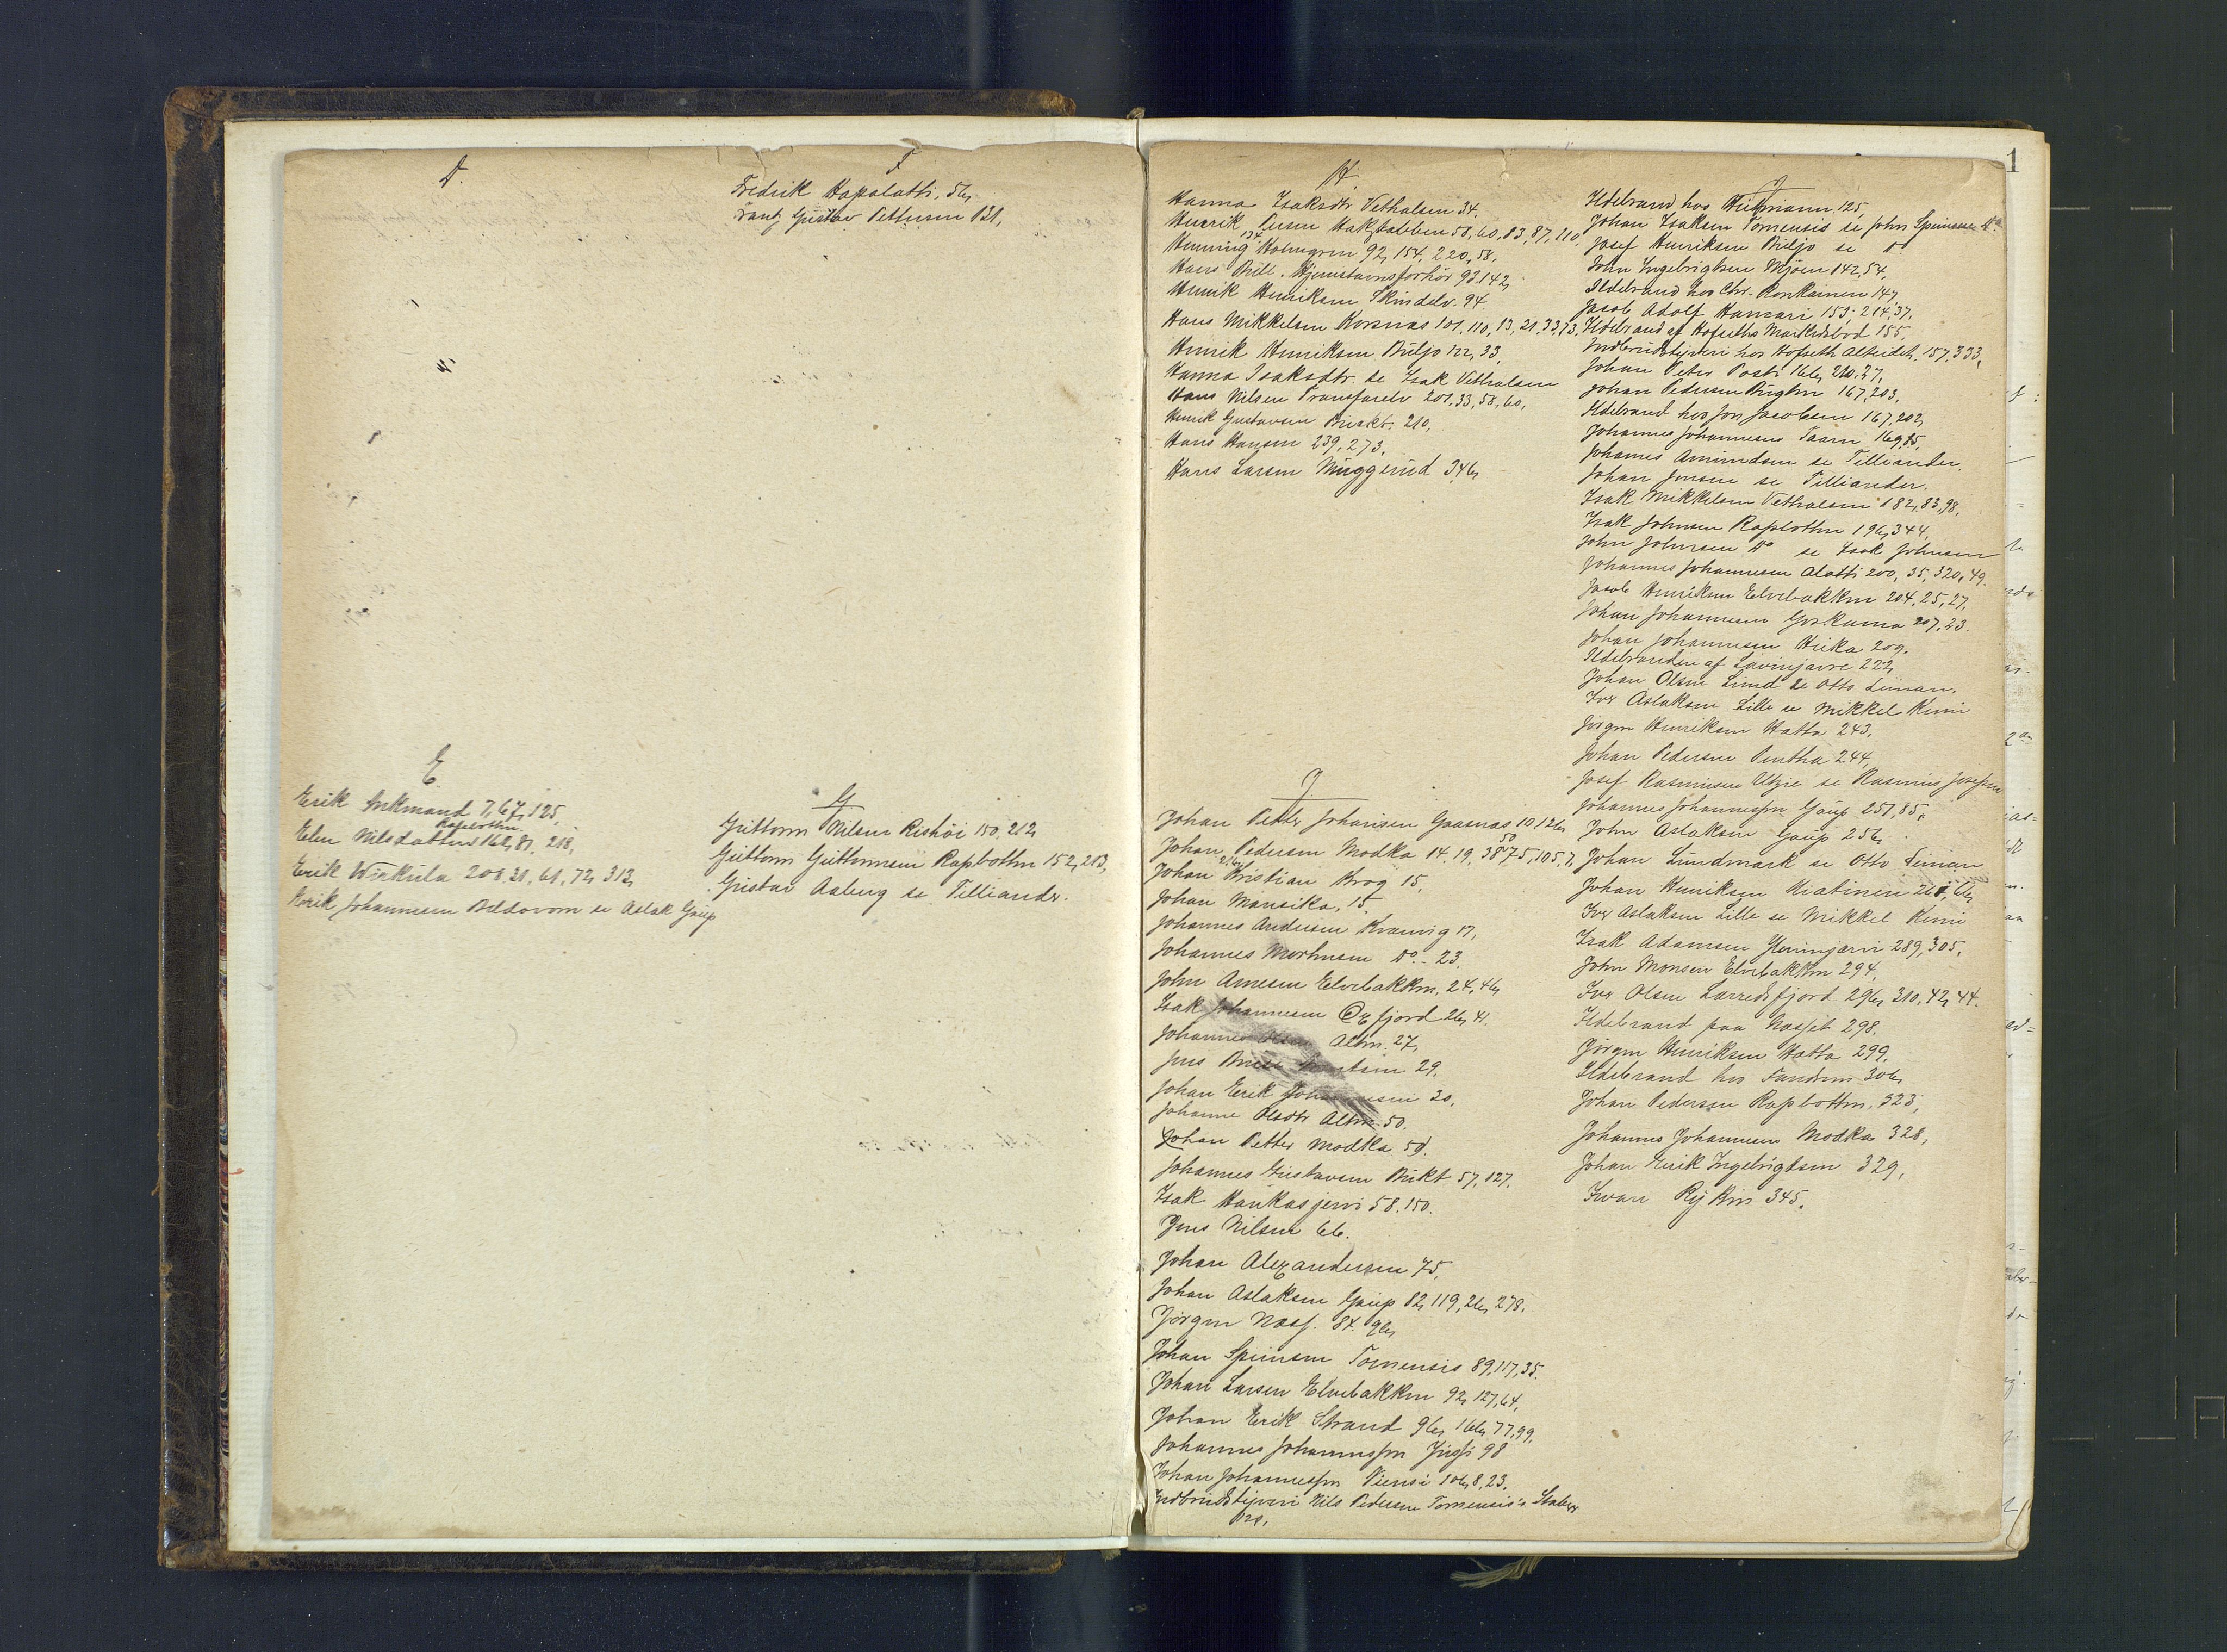 D.
E
Erik Inkmand 7, 67, 125,
Rapbotten
Elen Nilsdatter 162, 81, 218,
Erik Wirkula 208, 21, 61, 72, 313,
Erik Johannesen Beddovom se Aslak Gaup
F
Fredrik Hapalatti, 56,
Frantz Gustav Pettersen 131,
G
Guttorm Nilsen Rishöi 150, 212,
Guttorm Guttormsen Rapbotten 152, 213,
Gustav Aaberg se Tilliander.
H
Hanna Isaksdtr Vethalsen 34.
Henrik Persen Hakstabben 58, 60, 83, 87, 110,
134
Henning Holmgren 92, 154, 220, 58,
Hans Hjemstavnsforhör 93. 142,
Henrik Henriksen Skindelv. 94
Hans Mikkelsen Korsnæs 101, 110, 13, 21, 33, 73.
Henrik Henriksen Buljo 122, 33,
Hanna Isaksdtr. se Isak Vethalsen
Hans Nilsen Transfarelv 201, 33, 58, 60,
Henrik Gustavsen 210,
Hans Hansen 239, 273,
Hans Larsen Muggerud 346,
J.
Johan Petter Johansen Gaasnæs 10, 126,
50
Johan Pedersen Modka 14. 19, 38, 75, 105, 7,
Johan Kristian Krog 15,
Johan Mansika, 15.
Johannes Andersen Kvænvig 17,
Johannes Mortensen Do. 23
John Arnesen Elvebakken, 24, 46,
Isak Johannesen Øxfjord 26, 41.
Johannes Alten. 27,
Jens 29.
Johan Erik Johannesen 30,
Johanne Olsdtr Alten. 50.
Johan Petter Modka 59.
Johannes Gustavsen Bukt 57, 127.
Isak Haukasjervi 58. 150.
Jens Nilsen 66.
Johan Alexandersen 75,
Johan Aslaksen Gaup 82, 119, 26, 278.
Jörgen Næss. 84. 96,
Johan Speinsen Tornensis 89, 117, 35.
Johan Larsen Elvebakken 92, 127, 64,
Johan Erik Strand 96, 166, 77, 99.
Johannes Johannessen 98
Johan Johannessen Viensi 106, 8, 23.
Indbrudstyveri Nils Pedersen Tornensis's Stabur
120,
J
Ildebrand hos 125,
Johan Isaksen Tornensis se John Speinsen Do
Josef Henriksen Buljo se Do
John Ingebrigtsen Mjoen 142, 54,
Ildebrand hos Chr. Ronkainen 147,
Jacob Adolf Hansari 153, 214, 37.
Ildebrand af Hofseths Markedsbod 155,
Indbrudstyveri hos Hofseth Alteidet. 157, 333,
Johan Peter Posti 166, 210, 27,
Johan Pedersen 167, 203,
Ildebrand hos Jon Jacobsen 167, 202,
Johannes Johannesen Taarn 169, 85,
Johannes Amundsen se Tilliander.
Johan Jonsen se Tilliander.
Isak Mikkelsen Vethalsen 182, 83, 98.
Isak Johnsen Rapbotten 196, 344,
John Johnsen Do se Isak Johnsen
Johannes Johannesen Alatti 200, 35, 320, 49.
Jacob Henriksen Elvebakken 204, 25, 27,
Johan Johannesen Goskama 207, 23.
Johan Johannesen Heika 209.
Ildebranden af Lavinjavre 222,
Johan Olsen Lund se Otto Linnan.
Iver Aslaksen Lille se Mikkel Kemi
Jörgen Henriksen Hatta 243,
Johan Pedersen Pentha 244,
Josef Rasmusen Utzie se Rasmus Josefsen
Johannes Johannessen Gaup 251, 85,
John Aslaksen Gaup 256,
Johan Lundmark se Otto Linnan
Johan Henriksen Kiatinen 261, 66,
Iver Aslaksen Lille se Mikkel Kemi
Isak Adamsen 289, 305,
John Monsen Elvebakken 294,
Iver Olsen Lærredsfjord 296, 310, 42, 44.
Ildebrand paa Næsset 298.
Jörgen Henriksen Hatta 299.
Ildebrand hos Fandrem 306,
Johan Pedersen Rapbotten, 323,
Johannes Johannesen Modka 328,
Johan Erik Ingebrigtsen 329,
Iwan 345.
1